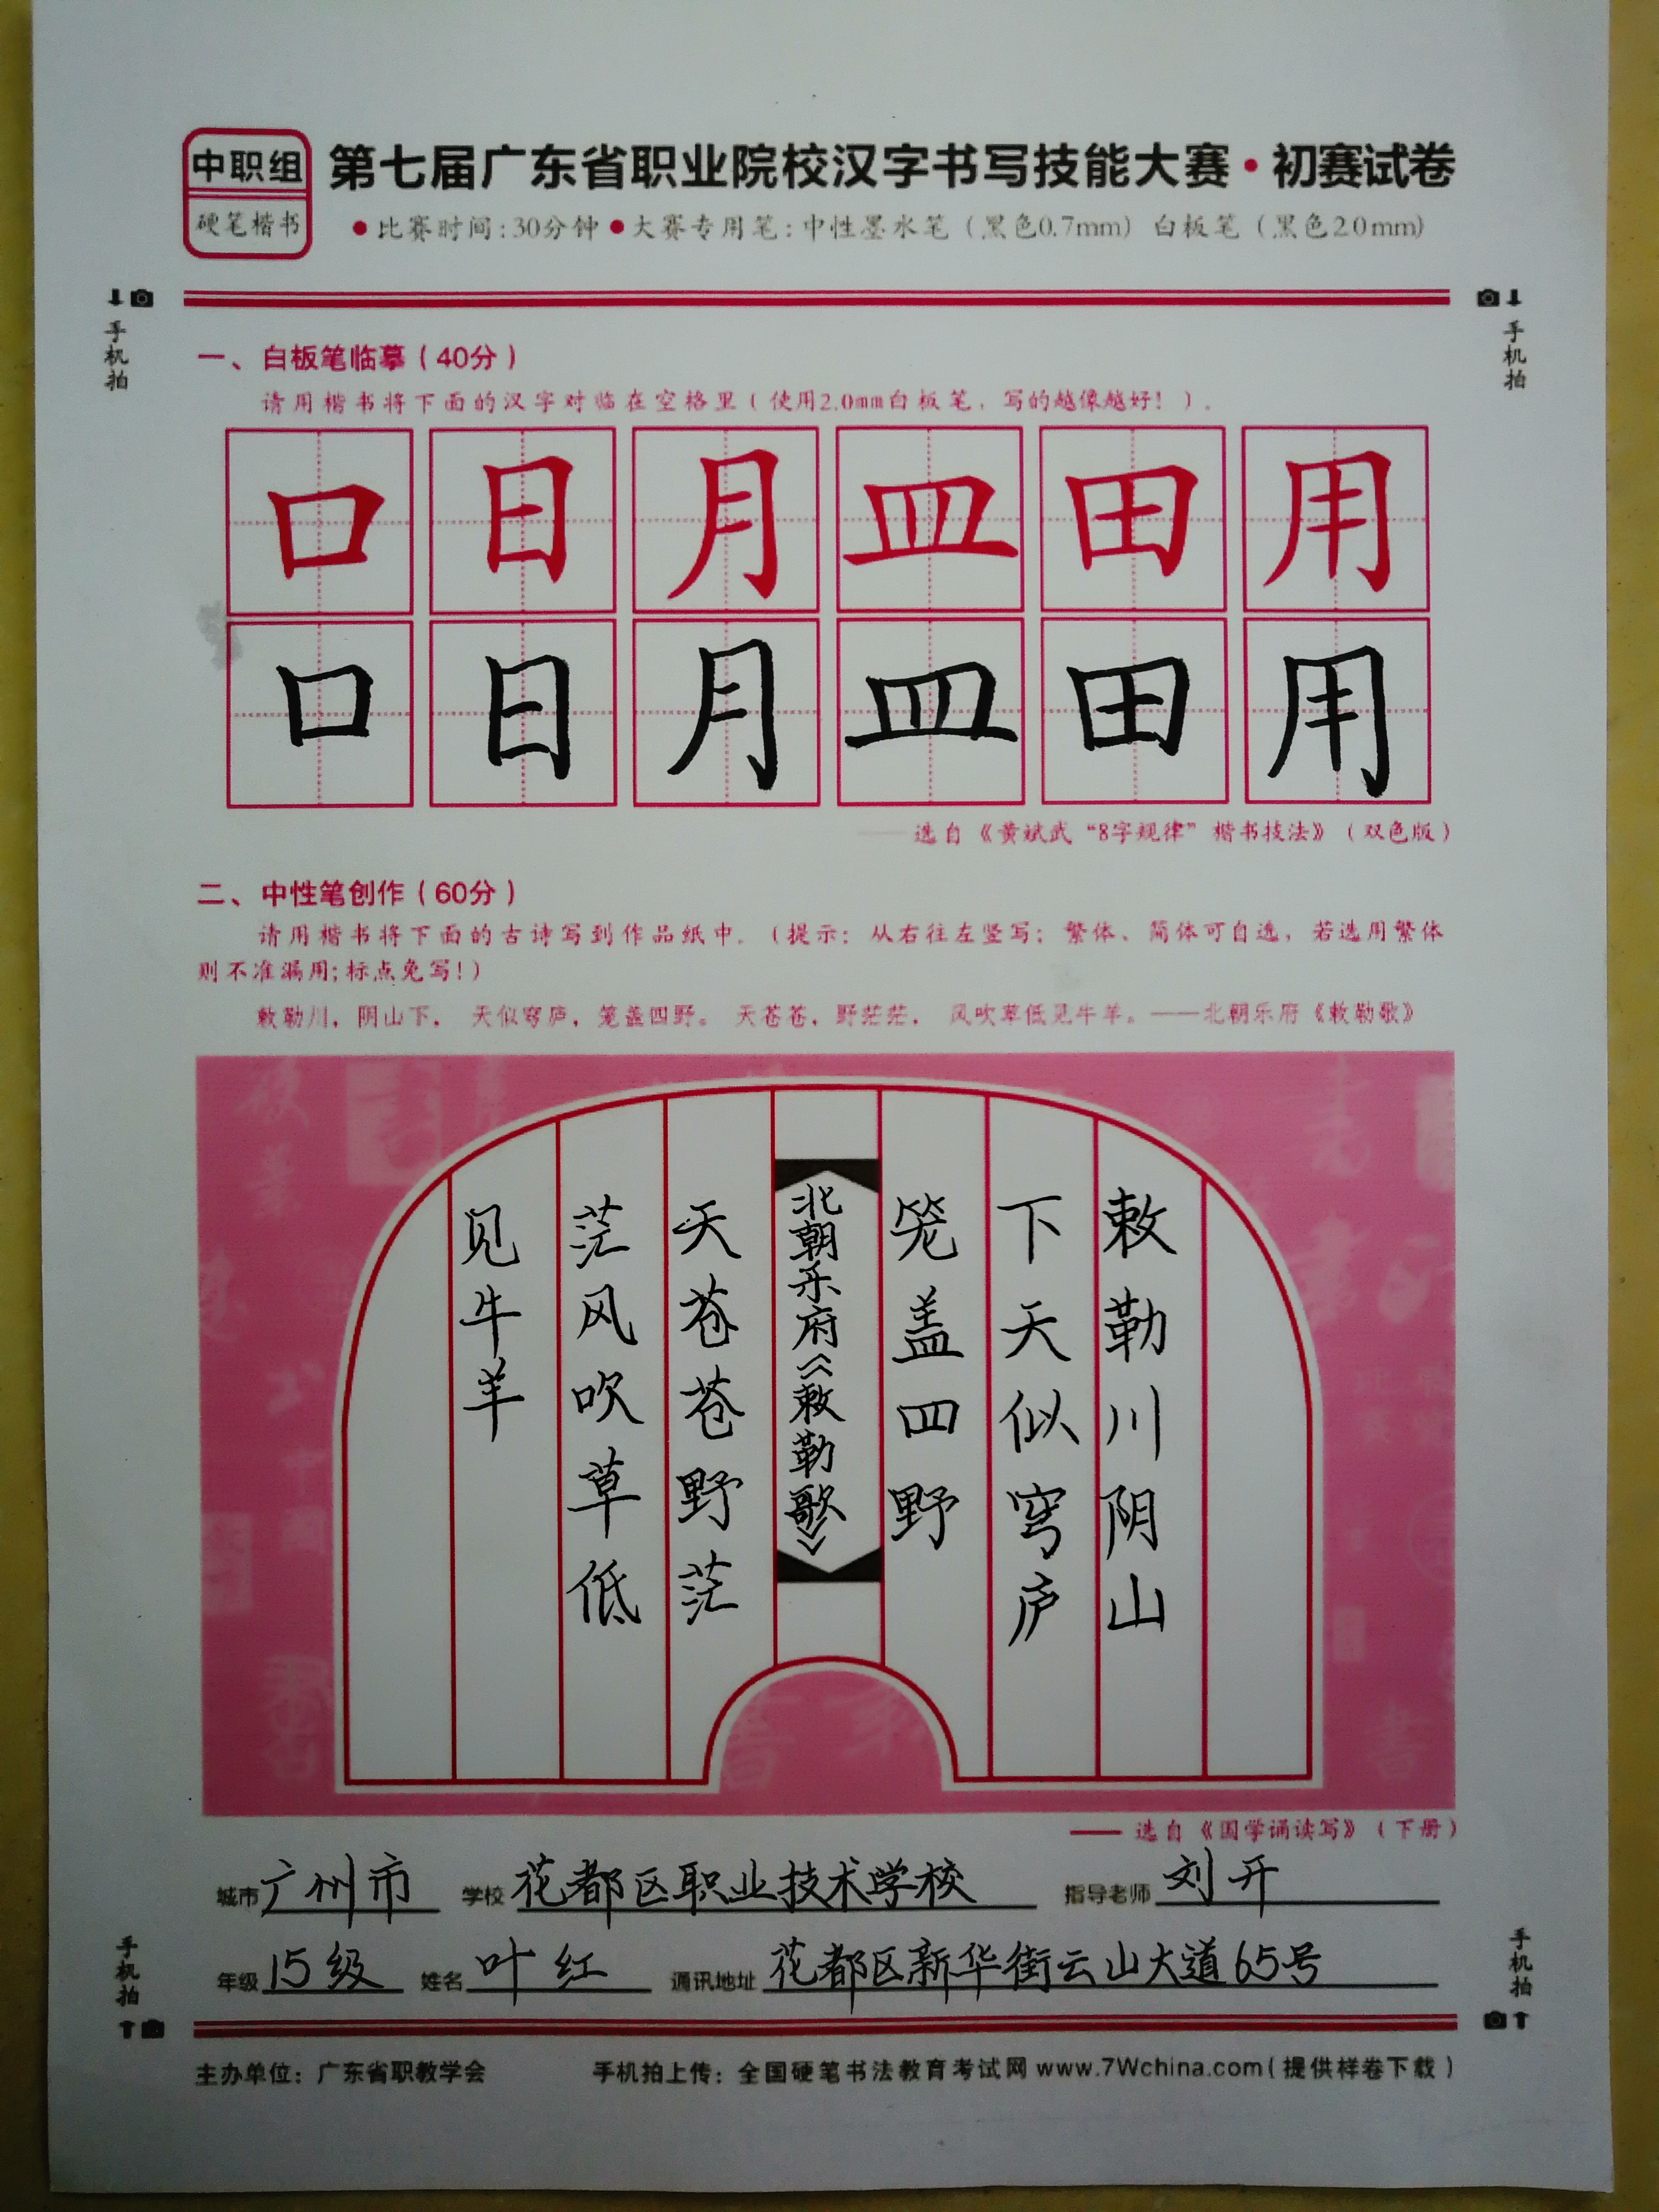 中职组
硬笔楷书
第七届广东省职业院校汉字书写技能大赛·初赛试卷
●比赛时间:30分钟●大赛专用笔:中性墨水笔（黑色0.7mm）白板笔（黑色2.0mm）
手机拍
手机拍
一、白板笔临摹（40分）
请用楷书将下面的汉字对临在空格里（使用2.0mm白板笔，写的越像越好！）。
口 日 月 皿 田 用
口 日 月 皿 田 用
——选自《黄斌武“8字规律”楷书技法》（双色版）
二、中性笔创作（60分）
请用楷书将下面的古诗写到作品纸中。（提示：从右往左竖写；繁体、简体可自选，若选用繁体
则不准漏用;标点免写!）
敕勒川，阴山下， 天似穹庐，笼盖四野。 天苍苍，野茫茫， 风吹草低见牛羊。——北朝乐府《敕勒歌》
敕勒川阴山
下天似穹庐
笼盖四野
北朝乐府《敕勒歌》
天苍苍野茫
茫风吹草低
见牛羊
——选自《国学诵读写》（下册）
城市 广州市 学校 花都区职业技术学校 指导老师 刘开
年级 15级 姓名 叶红 通讯地址 花都区新华街云山大道65号
手机拍
手机拍
主办单位：广东省职教学会 手机拍上传：全国硬笔书法教育考试网 www.7Wchina.com（提供样卷下载）